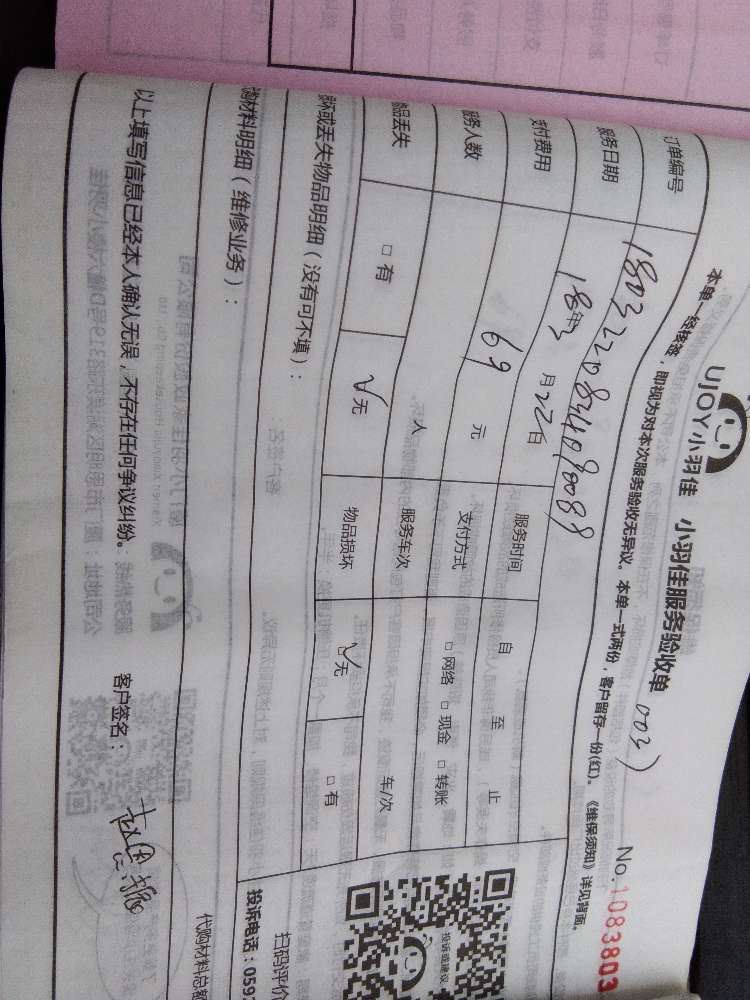 UJOY小羽佳 小羽佳服务验收单 003)
No.1083803
本单一经核签，即视为对本次服务验收无异议。本单一式两份，客户留存一份(红)。《维保须知》详见背面。
订单编号
服务日期 18年3月22日 服务时间 自 至 止
付费用 69 元 支付方式 □网络 □现金 □转账
服务人数 人 服务车次 车/次
物品丢失 □有 ☑无 物品损坏 ☑无 □有
损坏或丢失物品明细（没有可不填）：
材料明细（维修业务）：
代购材料总额
以上填写信息已经本人确认无误，不存在任何争议纠纷。 客户签名：
投诉或建议
扫码评价
投诉电话：059